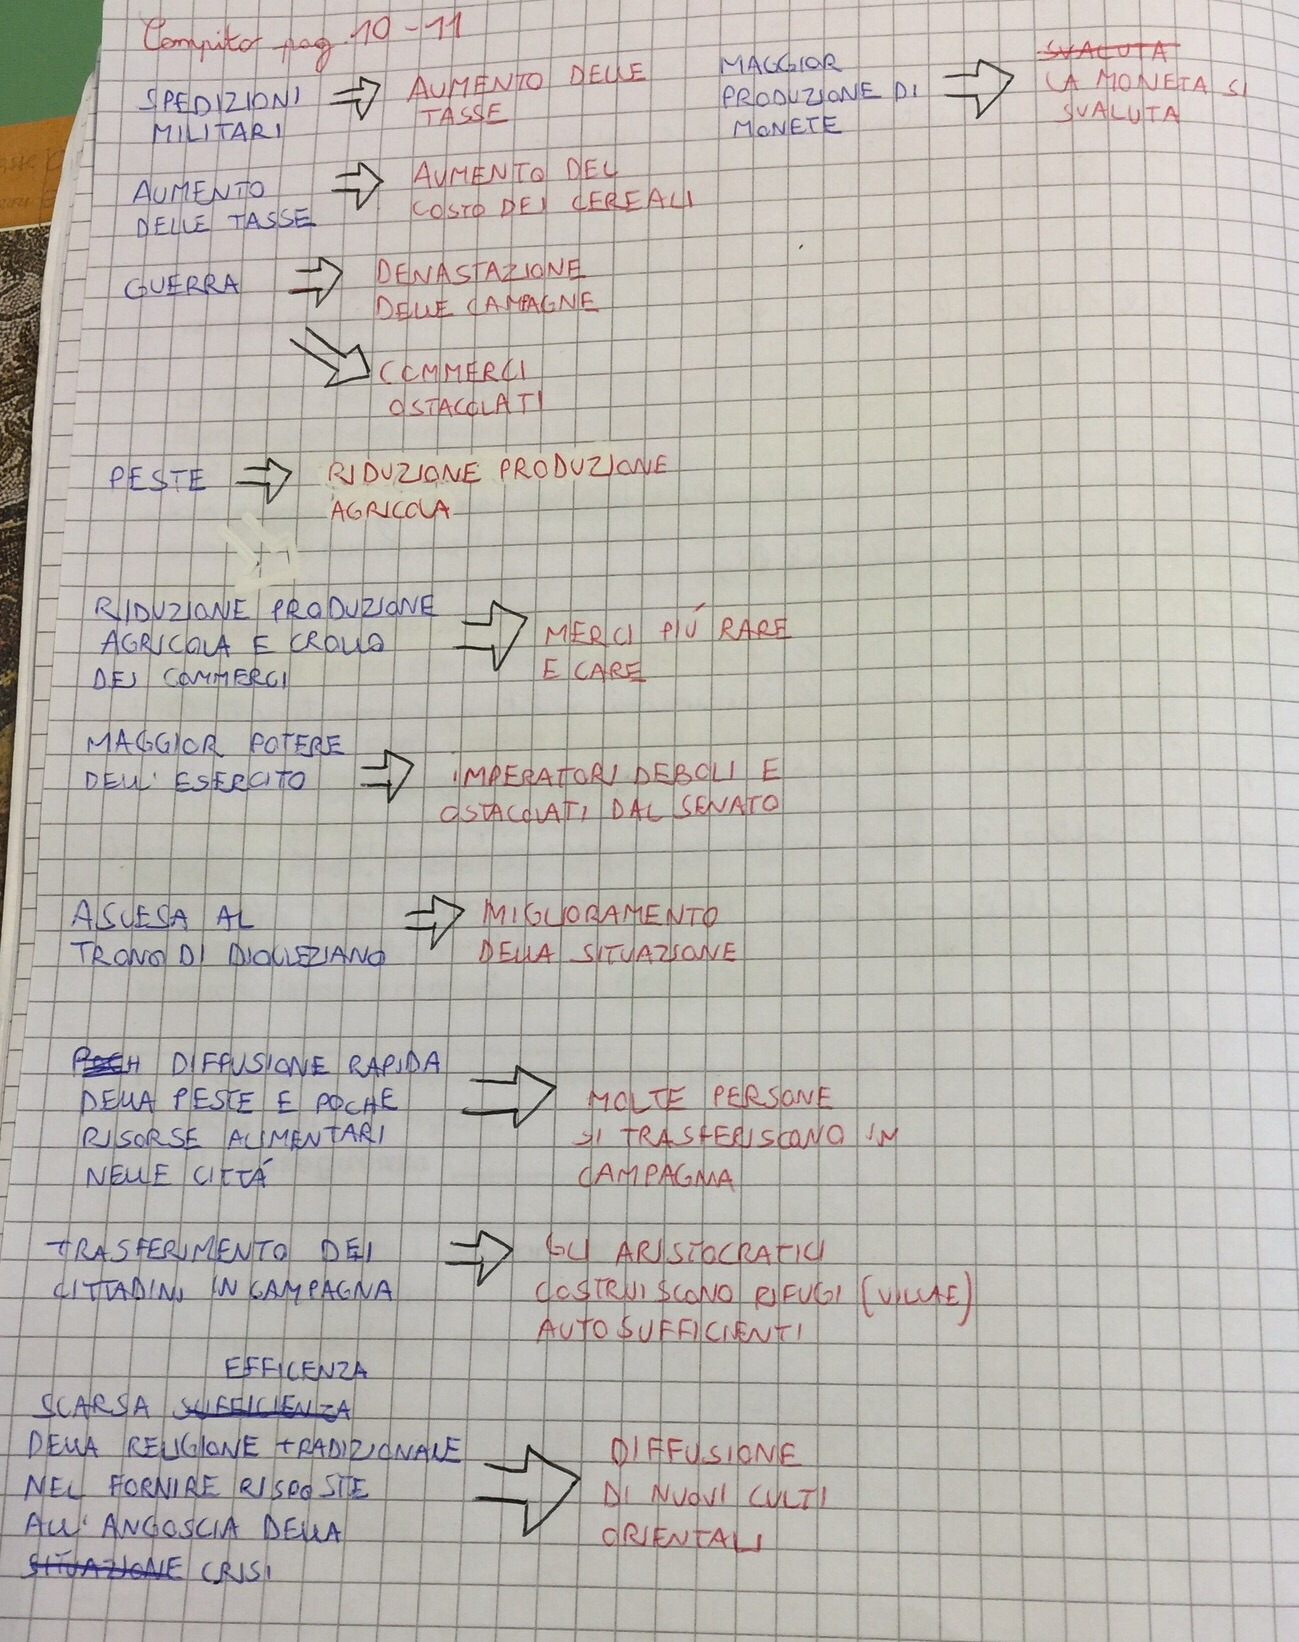 Compito pag 10-11
SPEDIZIONI
MILITARI
AUMENTO DELLE
TASSE
MAGGIOR
PRODUZIONE DI
MONETE
SVALUTA
LA MONETA SI
SVALUTA
AUMENTO
DELLE TASSE
AUMENTO DEL
COSTO DEI CEREALI
GUERRA
DENASTAZIONE
DELLE CAMPAGNE
COMMERCI
OSTACOLATI
PESTE
RIDUZIONE PRODUZIONE
AGRICOLA
RIDUZIONE PRODUZIONE
AGRICOLA E CROLLO
DEI COMMERCI
MERCI PIÚ RARE
E CARE
MAGGIOR POTERE
DELL'ESERCITO
IMPERATORI DEBOLI E
OSTACOLATI DAL SENATO
ASCESA AL
TRONO DI DIOCLEZIANO
MIGLIORAMENTO
DELLA SITUAZIONE
DIFFUSIONE RAPIDA
DELLA PESTE E POCHE
RISORSE ALIMENTARI
NELLE CITTÁ
MOLTE PERSONE
SI TRASFERISCONO IN
CAMPAGNA
TRASFERIMENTO DEI
CITTADINI IN CAMPAGNA
GLI ARISTOCRATICI
COSTRUISCONO RIFUGI (VILLAE)
AUTOSUFFICIENTI
EFFICENZA
SCARSA SUFFICIENZA
DELLA RELIGIONE TRADIZIONALE
NEL FORNIRE RISPOSTE
ALL'ANGOSCIA DELLA
SITUAZIONE CRISI
DIFFUSIONE
DI NUOVI CULTI
ORIENTALI